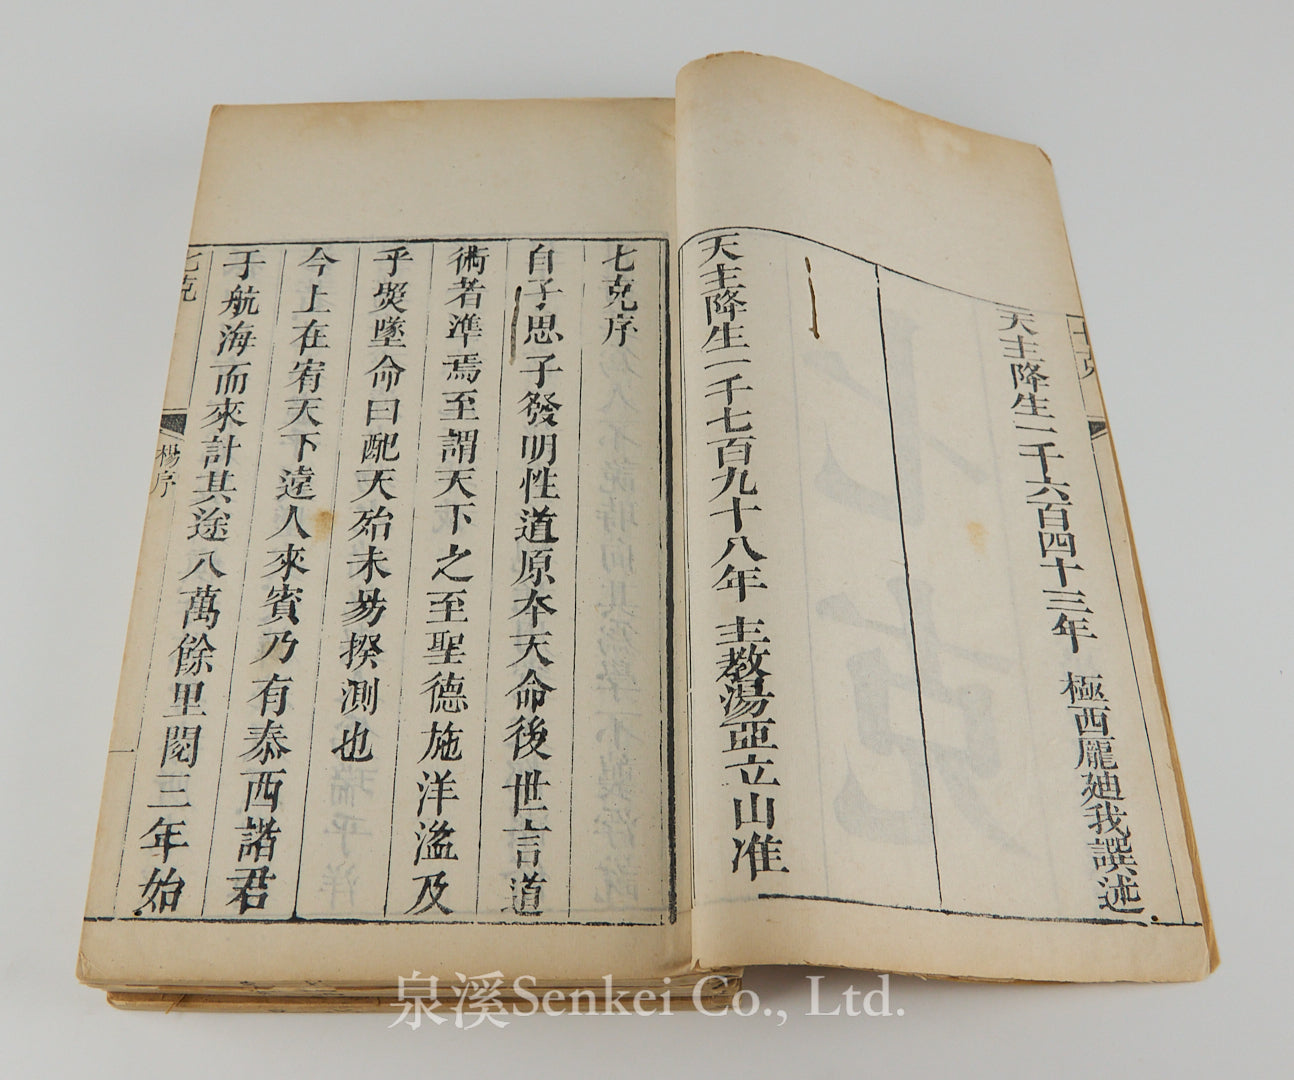 七克
天主降生一千六百四十三年　極西龐廸我譔述
天主降生一千七百九十八年　主教湯亞立山准
七克序
自子思子發明性道原本天命後世言道
術者準焉至謂天下之至聖德施洋溢及
乎煲墜命曰配天殆未易揆測也
今上在宥天下遠人來賓乃有泰西諸君
于航海而來計其途八萬餘里閱三年始
七克
楊序
泉溪Senkei Co., Ltd.